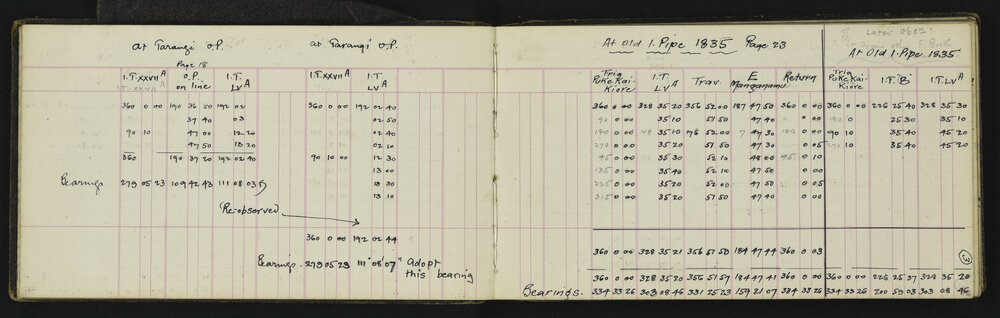 at Tarangi O.P.
at Tarangi O.P.
Page 18
I.T. XXVII A O.P. on line I.T. LV A
I.T. XXVII A I.T. LV A
360 0 00 190 36 50 192 02
37 40 03
90 10 47 00 12 20
47 50 13 20
360 190 37 20 192 02 40
Bearings 279 05 23 109 42 43 111 08 03
Re-observed
360 0 00 192 02 40
02 50
02 40
02 10
90 10 00 12 30
13 00
13 30
13 10
360 0 00 192 02 44
Bearings 279 05 23 111° 08' 07" adopt
this bearing
At Old I. Pipe 1835 Page 23
Later
At Old I. Pipe 1835
Trig Puke Kai-Kiore I.T. LV A Trav. E Manganamu Return
Trig Puke Kai Kiore I.T. "B" I.T. LV A
360 0 00 328 35 20 356 52 00 187 47 50 360 0 00 360 0 00 226 25 40 328 35 30
90 0 00 35 10 51 50 47 40 180 0 25 30 35 10
180 0 00 35 10 176 52 00 7 47 30 90 10 35 40 45 20
270 0 00 35 20 51 50 47 30 0 05 270 10 35 40 45 20
45 0 00 35 30 52 10 48 00 45 0 10
135 0 00 35 40 52 10 47 50
225 0 00 35 20 52 00 47 50 0 05
315 0 00 35 20 51 50 47 40
360 0 00 328 35 21 356 51 59 184 47 44 360 0 03
360 0 00 328 35 20 356 51 57 184 47 41 360 0 00 360 0 00 226 25 37 328 35 20
Bearings. 334 33 26 303 08 46 331 25 23 159 21 07 334 33 26 334 33 26 200 59 03 303 08 46